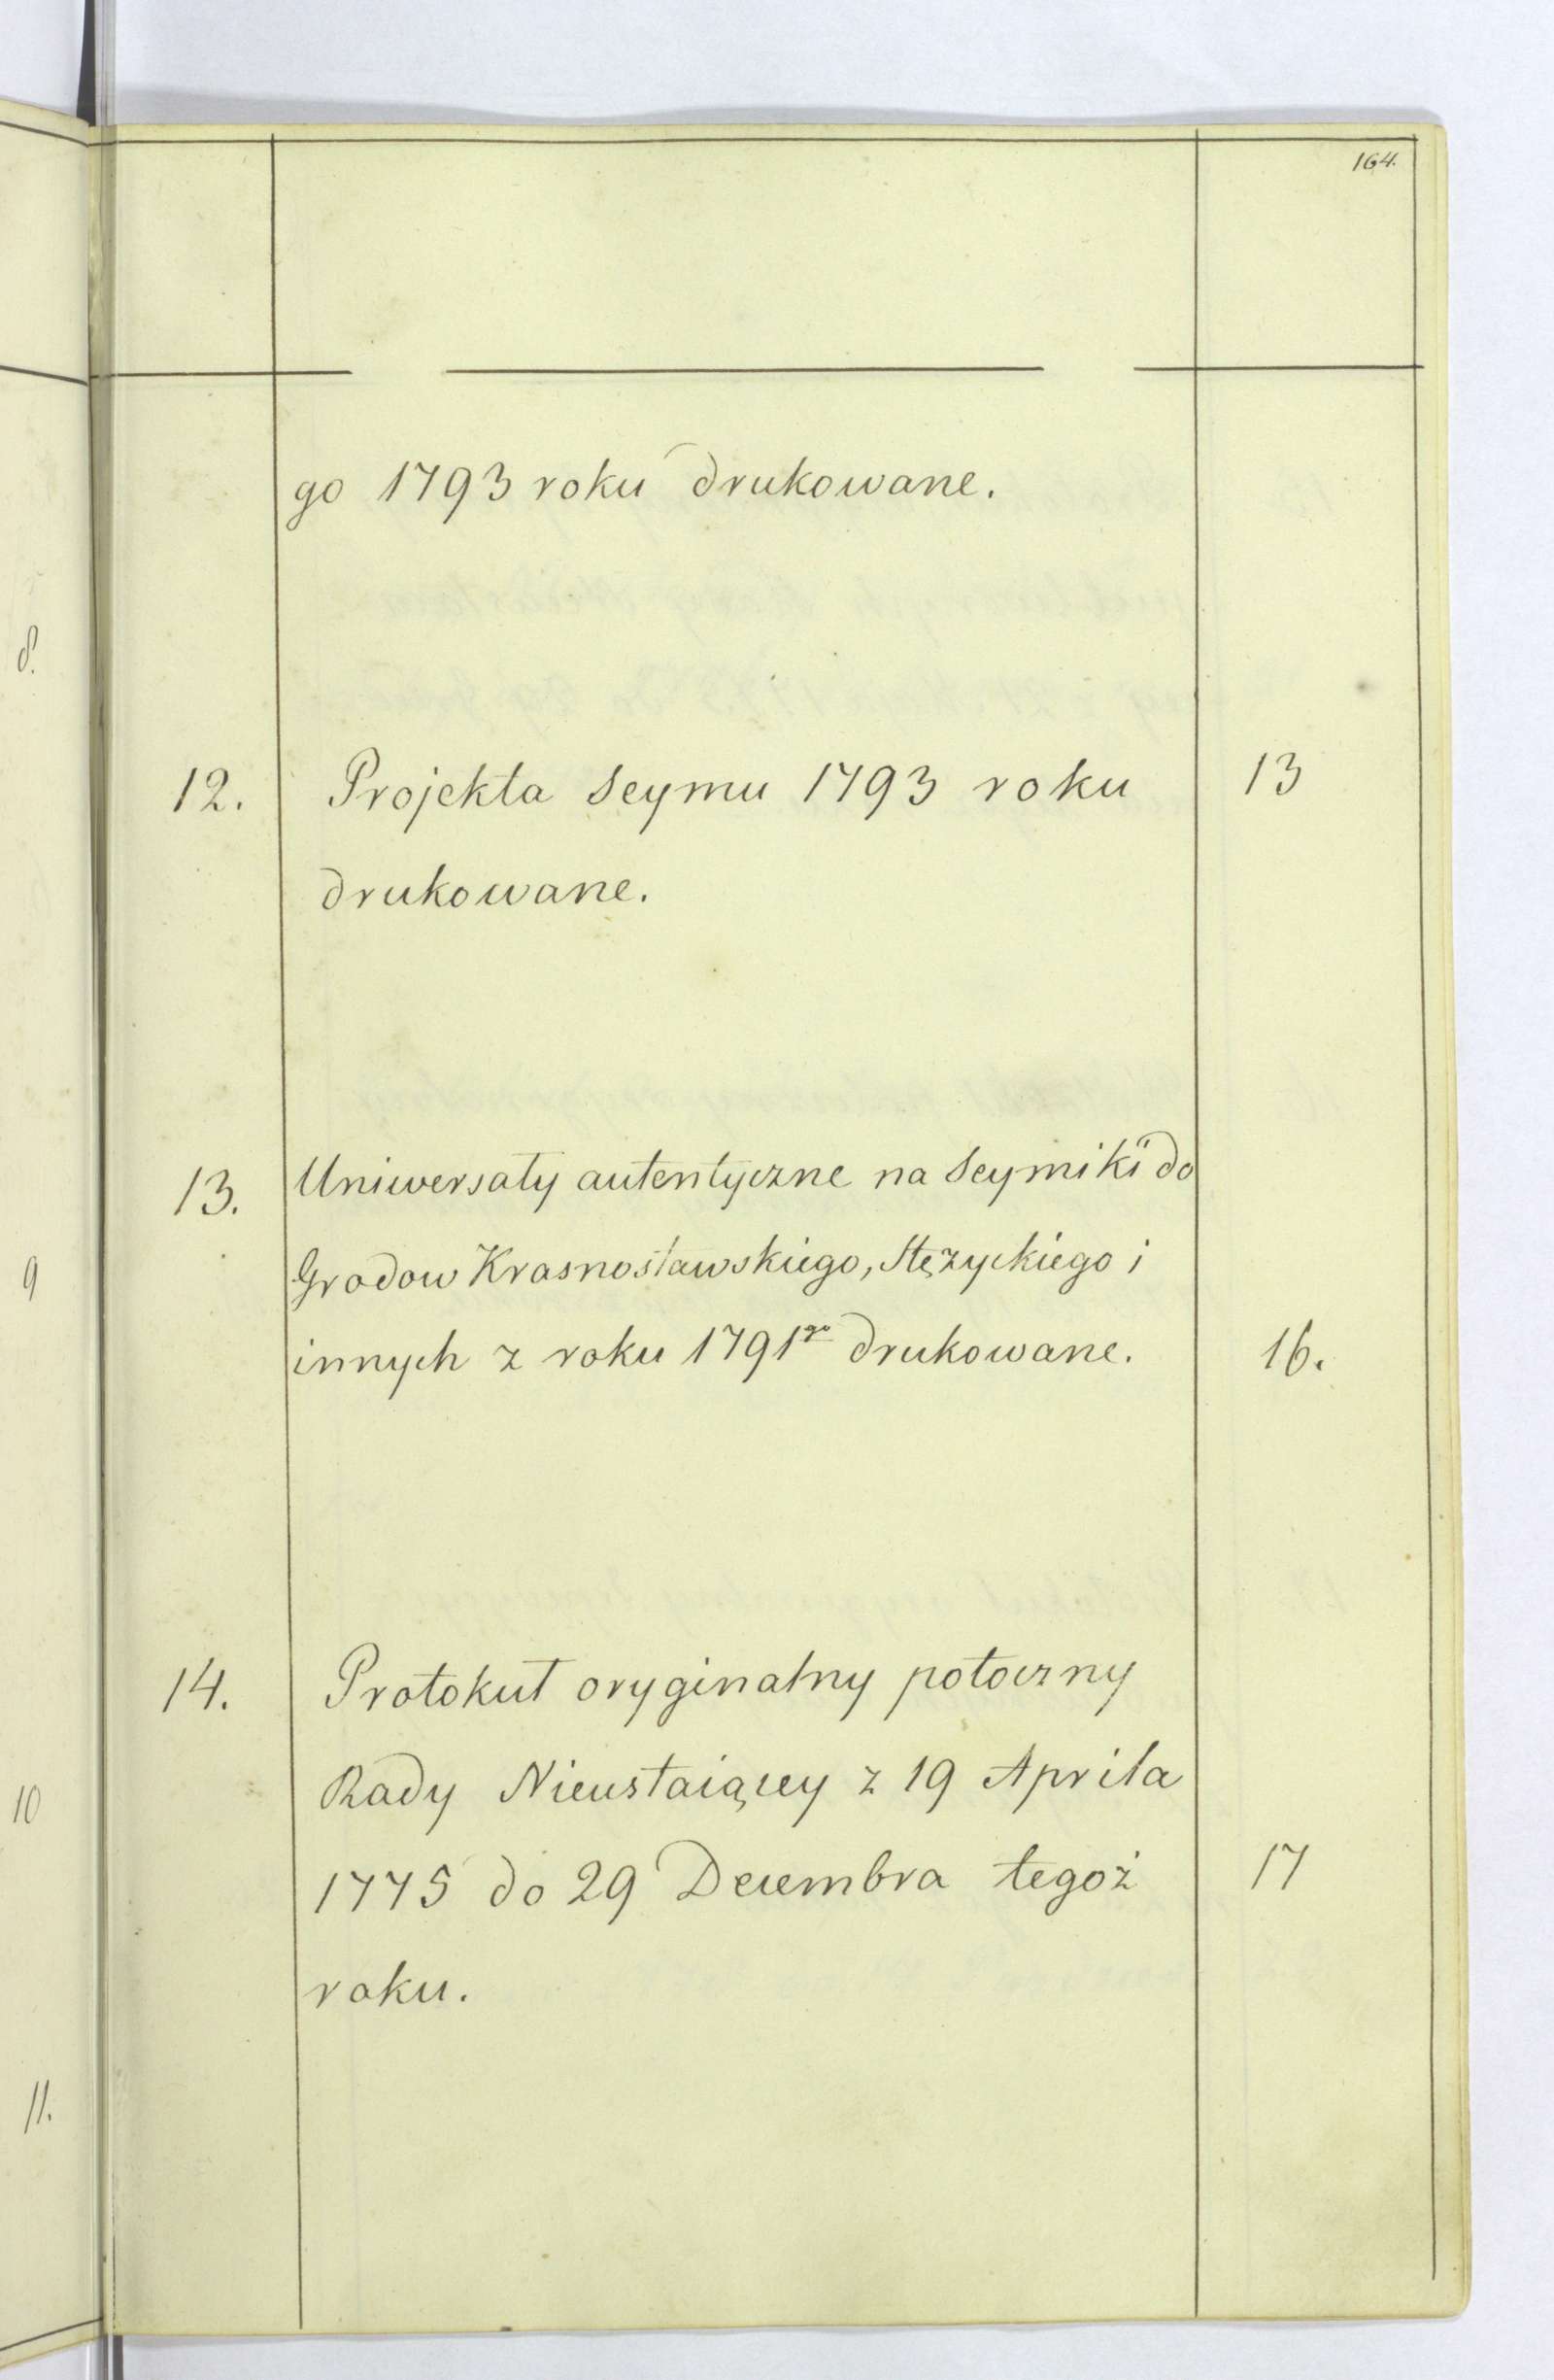 164.
go 1793 roku drukowane.
8.
12. Projekta Seymu 1793 roku 13
drukowane.
13. Uniwersały autentyczne na Seymiki do
9 Grodow Krasnosławskiego, Stężyckiego i
innych z roku 1791go drukowane. 16.
14. Protokuł oryginalny potoczny
10 Rady Nieustaiącey z 19 Aprila
1775 do 29 Decembra tegoż 17
roku.
11.